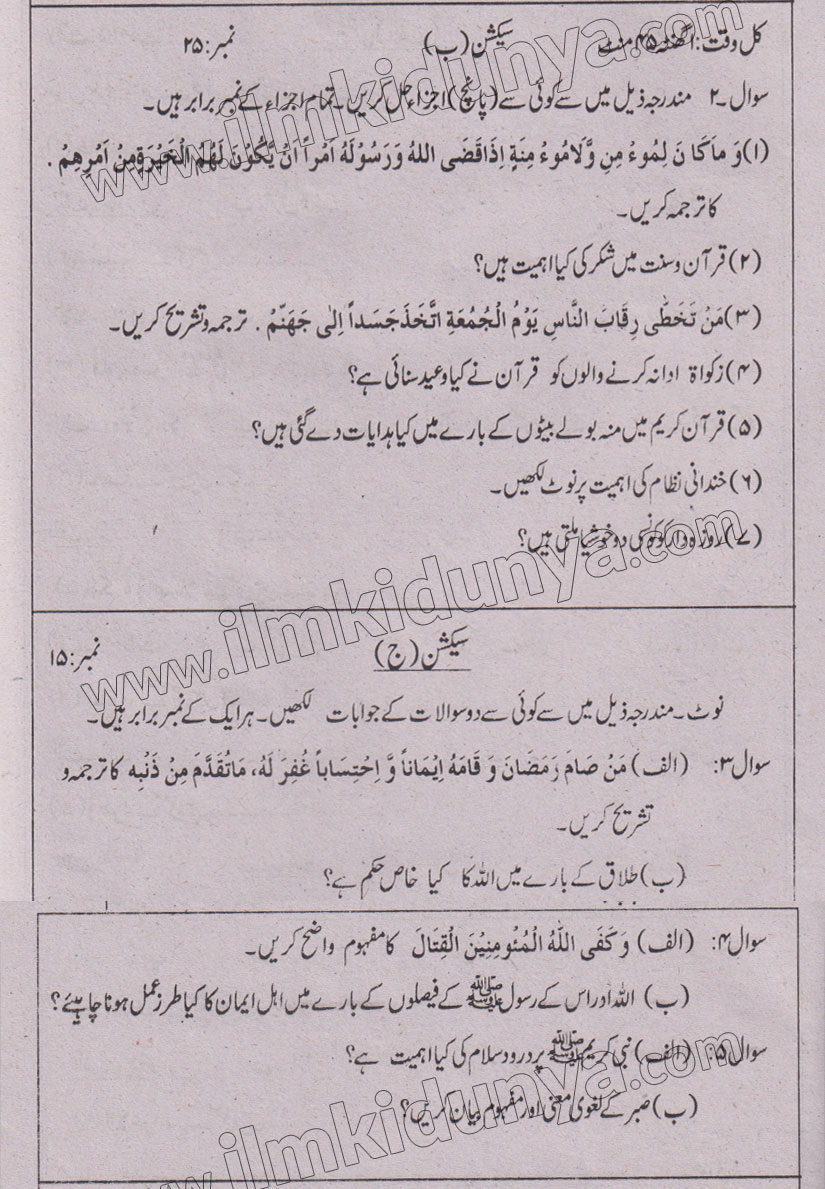 کل وقت: ۱گھنٹہ ۴۵ منٹ سیکشن (ب) نمبر: ۲۵
سوال ۲۔ مندرجہ ذیل میں سے کوئی سے (پانچ) اجزاء حل کریں۔ تمام اجزاء کے نمبر برابر ہیں۔
(۱) وَ مَا کَا نَ لِمُوءْ مِنِ وَّلَامُوءْ مِنَةٍ اِذَا قَضَى اللهُ وَ رَسُوْلَهُ اَمْراً اَنْ يَّكُوْنَ لَهُمُ الْخَيْرَةِ مِنْ اَمْرِهِمْ .
کا ترجمہ کریں۔
(۲) قرآن وسنت میں شکر کی کیا اہمیت ہیں؟
(۳) مَنْ تَخَطّٰى رِقَابَ النَّاسِ يَوْمُ الْجُمُعَةِ اتَّخَذَ جَسَداً اِلٰى جَهَنَّمْ . ترجمہ و تشریح کریں۔
(۴) زکواۃ ادا نہ کرنے والوں کو قرآن نے کیا وعید سنائی ہے؟
(۵) قرآن کریم میں منہ بولے بیٹوں کے بارے میں کیا ہدایات دے گئی ہیں؟
(۶) خندانی نظام کی اہمیت پر نوٹ لکھیں۔
(۷) روزہ دار کو کونسی دو خوشیا ملتی ہیں؟
سیکشن (ج) نمبر: ۱۵
نوٹ۔ مندرجہ ذیل میں سے کوئی سے دو سوالات کے جوابات لکھیں۔ ہر ایک کے نمبر برابر ہیں۔
سوال ۳: (الف) مَنْ صَامَ رَمَضَانَ وَ قَامَهُ اِيْمَاناً وَّ اِحْتِسَاباً غُفِرَ لَهُ، مَاتُقَدَّمَ مِنْ ذَنْبِه کا ترجمہ و
تشریح کریں۔
(ب) طلاق کے بارے میں اللہ کا کیا خاص حکم ہے؟
سوال ۴: (الف) وَ كَفَى اللّٰهُ الْمُئْومِنِيْنَ الْقِتَالَ کا مفہوم واضح کریں۔
(ب) اللہ اور اس کے رسول ﷺ کے فیصلوں کے بارے میں اہل ایمان کا کیا طرز عمل ہونا چاہیئے؟
سوال ۵: (الف) نبی کریم ﷺ پر درود سلام کی کیا اہمیت ہے؟
(ب) صبر کے لغوی معنی اور مفہوم بیان کریں؟
www.ilmkidunya.com
www.ilmkidunya.com
www.ilmkidunya.com